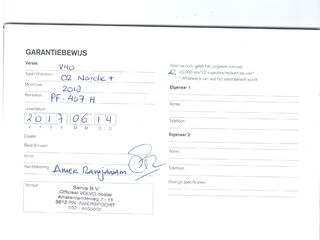 GARANTIEBEWIJS
Versie V40
Type/Uitvoering D2 Nordic +
Modeljaar 2018
Kenteken PF-407-H
Leverdatum
2 0 1 7 0 6 1 4
Y Y Y Y M M D D
Dealer
Bedrijfsnaam
Adres
Handtekening Amer Ramjanam
Stempel
Servia B.V.
Officieel VOLVO dealer
Amsterdamseweg 7 - 15
3812 RN AMERSFOORT
Voor uw auto geldt het volgende interval:
30.000 km/12 maanden/motordraaiuren*
* Afhankelijk van wat het eerst bereikt wordt
Eigenaar 1
Adres
Telefoon
Eigenaar 2
Adres
Telefoon
Overige specificaties